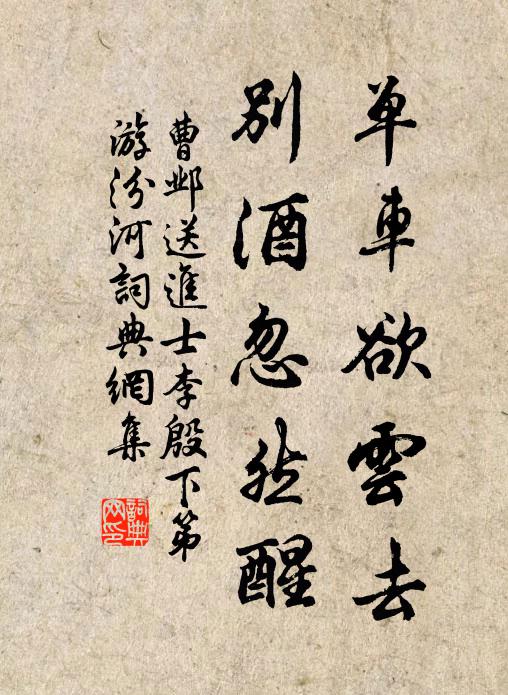 单車欲雲去
別酒忽然醒
曹邺送進士李殷下第
游汾河詞典網集
詞典
网印